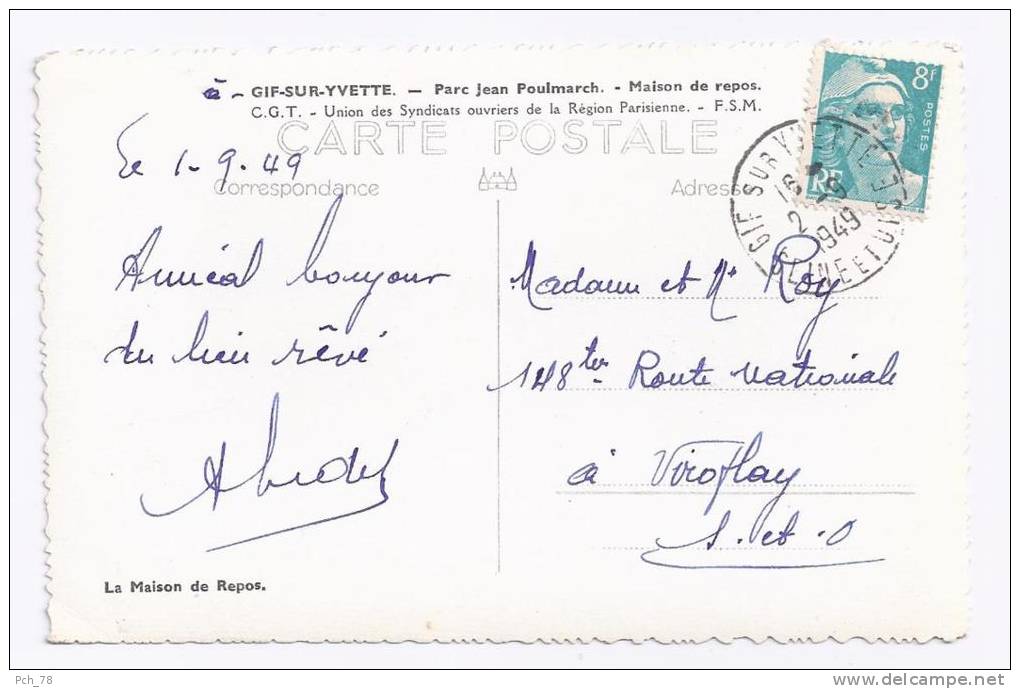 à - GIF-SUR-YVETTE. — Parc Jean Poulmarch. - Maison de repos.
C.G.T. - Union des Syndicats ouvriers de la Région Parisienne. - F.S.M.
CARTE POSTALE
Correspondance
Adresse
8f
POSTES
RF
GIF SUR YVETTE
16
2 - 9
1949
SEINE ET OISE
Le 1-9-49
Amical bonjour
du lieu rêvé
Madame et Mr Roy
148ter Route Nationale
à Viroflay
S.et.O
La Maison de Repos.
Pch_78
delcampe.net